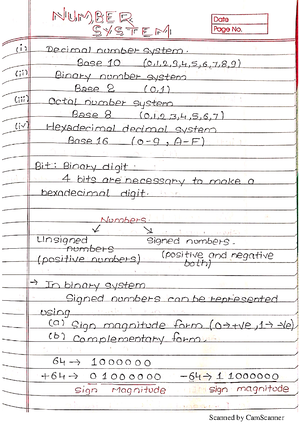 NUMBER
SYSTEM
Date
Page No.
(i) Decimal number system.
Base 10 (0,1,2,3,4,5,6,7,8,9)
(ii) Binary number system
Base 2 (0,1)
(iii) Octal number system
Base 8 (0,1,2,3,4,5,6,7)
(iv) Hexadecimal decimal system
Base 16 (0-9, A-F)
Bit: Binary digit.
4 bits are necessary to make a
hexadecimal digit.
Numbers.
Unsigned numbers (positive numbers)
Signed numbers. (positive and negative both)
→ In binary system
Signed numbers can be represented
using
(a) Sign magnitude form (0→+ve, 1→-ve)
(b) Complementary form.
64→ 1000000
+64→ 0 1000000 -64→ 1 1000000
Sign Magnitude sign magnitude
Scanned by CamScanner